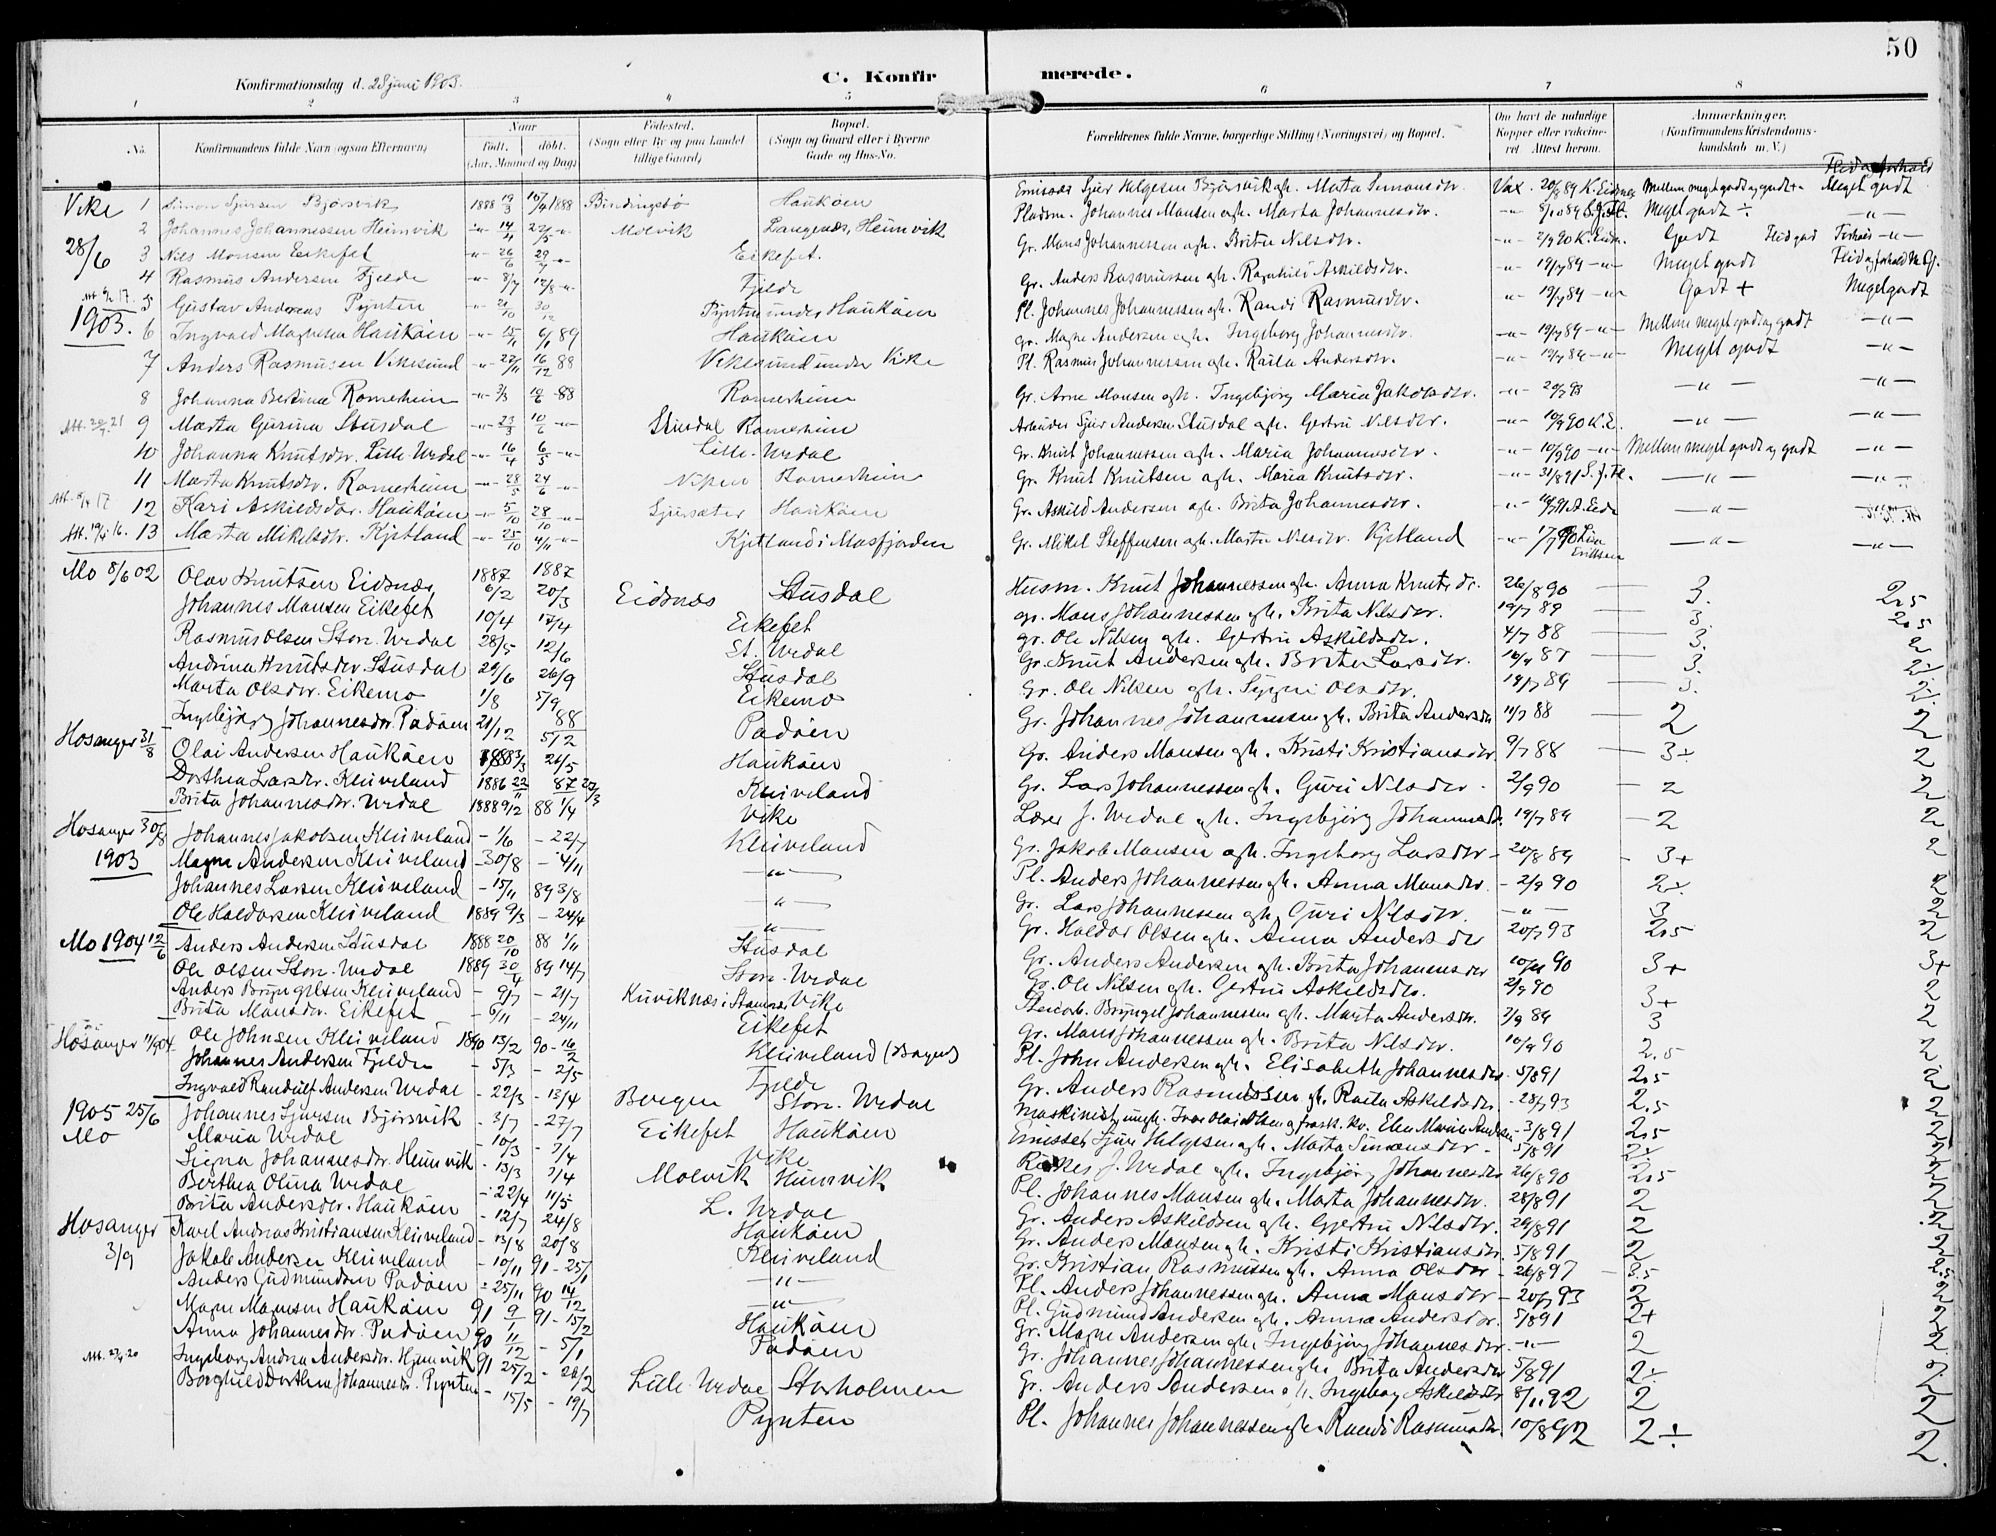 50
Konfirmationsdag d. 28 juni 1903.
C. Konfirmerede.
1 2 3 4 5 6 7 8
No. Konfirmandens fulde Navn (ogsaa Efternavn) Naar født. døbt. (Aar, Maaned og Dag) Fødested. (Sogn eller By og paa Landet tillige Gaard) Bopæl. (Sogn og Gaard eller i Byerne Gade og Hus-No. Forældrenes fulde Navne, borgerlige Stilling (Næringsvei) og Bopæl. Om havt de naturlige Kopper eller vakcineret. Attest herom. Anmærkninger. (Konfirmandens Kristendomskundskab m. V.)
Vike 1 Simon Sjursen Bjørsvik 1888 Haukøen Emissær Sjur Helgesen Bjørsvik ogh. Marta Simonsdtr. Vax. 20/8 89 K. Eidsnes Mellem meget godt og godt+ Meget godt
2 Johannes Johannessen Heimvik 14/4 Molvik Langenæs, Heimvik Pladsm. Johannes Monsen ogh. Marta Johannesdtr. Meget godt ÷ -"-
28/6 3 Nils Monsen Eikefet 26/6 Eikefet. Gr. Mons Johannessen ogh. Brita Nilsdtr. 2/9 90 K. Eidn. Godt
4 Rasmus Andersen Fjelde 8/7 Fjelde Gr. Anders Rasmussen ogh. Ragnhild Askildsdtr. 19/7 89 -"- Meget godt
5 Gustav Andreas Pynten 21/10 30/12 Pynten under Haukøen Pl. Johannes Johannessen ogh. Randi Rasmusdtr. 19/7 89 -"- Godt + Meget godt
1903. 6 Ingvald Magnesen Haukøen 15/11 6/1 89 Haukøen Gr. Magne Andersen ogh. Ingeborg Johannesdtr. 19/7 89 -"- Mellem meget godt og godt -"-
7 Anders Rasmusen Vikesund 22/11 16/12 88 Vikesund under Vike Pl. Rasmus Johannessen ogh. Raila Andersdtr. 19/7 89 -"- Meget godt -"-
8 Johanna Bertine Romerheim 3/3 88 Romerheim Gr. Arne Monsen ogh. Ingebjørg Maria Jakobsdtr. 20/7 93 -"- -"-
9 Marta Gurina Stusdal 23/3 10/6 -"- Stusdal Romerheim Arbeider Sjur Andersen Stusdal ogh. Gertru Nilsdtr. 10/9 90 K.E. -"- -"-
10 Johanna Knutsdtr. Lille-Urdal 16/4 6/5 -"- Lille-Urdal Gr. Knut Johannessen ogh. Maria Johannesdtr. 10/9 90 -"- Mellem meget godt og godt -"-
11 Marta Knutsdtr. Romerheim 28/5 24/6 -"- Romerheim Gr. Knut Knutsen ogh. Maria Knutsdtr. 31/8 91 -"- -"-
12 Kari Askildsdtr. Haukøen 5/10 28/10 -"- Sjursæter Haukøen Gr. Askild Andersen ogh. Brita Johannesdtr. -"-
13 Marta Mikelsdtr. Kjetland 25/10 4/11 -"- Kjetland i Masfjorden Gr. Mikel Steffensen ogh. Marta Nilsdtr. Kjetland -"- -"-
Mo 8/6 02 Olav Knutsen Eidsnæs 1887 6/2 1887 20/3 Eidsnæs Stusdal Husm. Knut Johannessen ogh. Anna Knutsdtr. 26/8 90 3. 2.5
Johannes Monsen Eikefet 10/4 17/4 Eikefet gr. Mons Johannessen ogh. Brita Nilsdtr. 19/7 89 3. 2.5
Rasmus Olsen Stor. Urdal 28/5 12/6 St. Urdal gr. Ole Nilsen ogh. Gertru Askildsdtr. 4/7 88 3. 2
Andrina Knutsdtr Stusdal 29/6 26/9 Stusdal Gr. Knut Andersen ogh. Brita Larsdtr. 3.
Marta Olsdtr. Eikemo 1/8 5/9 Eikemo Gr. Ole Nilsen ogh. Olsdtr. 19/7 89 3.
Ingebjørg Johannesdtr Padøen 21/12 88 5/2 Padøen Gr. Johannes Johannessen ogh. Brita Andersdtr 11/7 88 2 2
Hosanger 31/8 Olai Andersen Haukøen 1888 3/3 21/5 Haukøen Gr. Anders Monsen ogh. Kristi Kristiansdtr 9/7 88 3÷ 2
Dorthea Larsdtr. Kleiveland 1886 22/11 87 Kleiveland Gr. Lars Johannessen ogh. Guri Nilsdtr 2/9 90 2 2
Brita Johannesdtr. Urdal 1888 9/2 88 1/4 Vike Lærer J. Urdal ogh. Ingebjørg Johannesdtr. 19/7 89 2 2
Hosanger 30/8 Johannes Jakobsen Kleiveland 1/6 22/7 Kleiveland Gr. Jakob Monsen ogh. Ingeborg Larsdtr 20/8 89 3+ 2
1903 Magne Andersen Kleiveland 30/8 4/11 -"- Pl. Anders Johannessen ogh. Anna Monsdtr 2/9 90 2÷ 2
Johannes Larsen Kleiveland 15/11 89 3/8 -"- Gr. Lars Johannessen ogh. Guri Nilsdtr. -"- 3 2
Ole Haldorsen Kleiveland 1889 9/3 24/4 -"- Gr. Haldor Olsen ogh. Anna Andersdtr 20/7 93 2.5 2
Mo 1904 12/6 Anders Andersen Stusdal 1888 20/10 88 1/11 Stusdal Gr. Anders Andersen ogh. Brita Johannesdtr 90 3+ 3+
Ole Olsen Stor. Urdal 1889 30/4 89 14/7 Stor. Urdal Gr. Ole Nilsen ogh. Gertru Askildsdtr. 2/9 90 3+ 2
Anders Bryngelsen Kleiveland 9/7 21/7 Kviknæs i Stamnes Vike Brynget Johannessen ogh. Marta Andersdtr. 2/9 89 3 2
Brita Monsdtr. Eikefet 6/11 24/11 Eikefet Gr. Mons Johannessen ogh. Brita Nilsdtr. 10/9 90 2.5 2
Hosanger 11/9 04 Ole Johnsen Kleiveland 1890 13/2 90 16/2 Kleiveland Pl. John Andersen ogh. Elisabeth Johannesdtr 5/8 91 2.5 2
Johannes Andersen Fjelde 5/3 2/5 Fjelde Gr. Anders Rasmussen ogh. Raila Askildsdtr 28/7 93 2.5 2
Ingvald Randulf Andersen Urdal 22/3 13/4 Bergen Stor. Urdal Maskinist ungk. Ivar Olai Olsen og frask. kv. Elen Marie Andersen 3/8 91 2.5 2
1905 25/6 Johannes Sjursen Bjørsvik 3/7 27/7 Eikefet Haukøen Emissær Sjur Helgesen ogh. Marta Simonsdtr 5/8 91 2÷ 2
Mo Maria Urdal 10/3 7/4 Vike Kirkes. J. Urdal ogh. Ingebjørg Johannesdtr 26/8 90 2.5 2
Signa Johannesdtr. Heimvik 13/3 7/4 Molvik Heimvik Pl. Johannes Monsen ogh. Marta Johannesdtr. 28/8 91 2 2
Berthea Olina Urdal 22/4 11/5 L. Urdal Gr. Anders Askildsen ogh. Gjertru Nilsdtr. 29/8 91 2 2
Brita Andersdtr. Haukøen 12/7 24/8 Haukøen Gr. Anders Monsen ogh. Kristi Kristiansdtr. 5/8 91 2 2
Hosanger Karl Andreas Kristiansen Kleiveland 13/8 20/8 Kleiveland Gr. Kristian Rasmussen ogh. Anna Olsdtr 26/8 97 3.5 2.5
3/9 Jakob Andersen Kleiveland 10/11 91 25/1 -"- Pl. Anders Johannessen ogh. Anna Monsdtr 20/7 93 2 2
Anders Gudmundsen Padøen 25/11 90 14/12 -"- Pl. Gudmund Andersen ogh. Anna Andersdtr. 5/8 91 2+ 2
Magne Magnesen Haukøen 91 9/1 91 15/2 Haukøen Gr. Magne Andersen ogh. Ingebjørg Johannesdtr. -"- 2 2
Anna Johannesdtr. Padøen 90 11/12 5/1 Padøen Gr. Johannes Johannessen ogh. Brita Andersdtr 5/8 91 2÷ 2
Ingeborg Andrea Andersdtr. Hjemvik 91 25/2 26/2 Lille-Urdal Storholmen Gr. Anders Andersen ogh. Ingeborg Askildsdtr 8/11 92 2 2
Borghild Dorthea Johannesdtr. Pynten 15/5 19/7 Pynten Pl. Johannes Johannessen ogh. Randi Rasmusdtr. 10/8 92 2÷ 2.